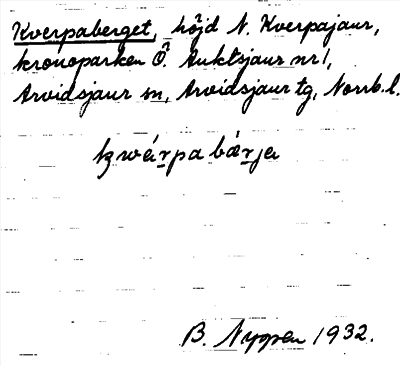 Kverpaberget, höjd N. Kverpajaur,
kronoparken Ö. Auktsjaur nr 1,
Arvidsjaur sn, Arvidsjaur tg, Norrb. l.
kwárpa bárja
B. Nygren 1932.